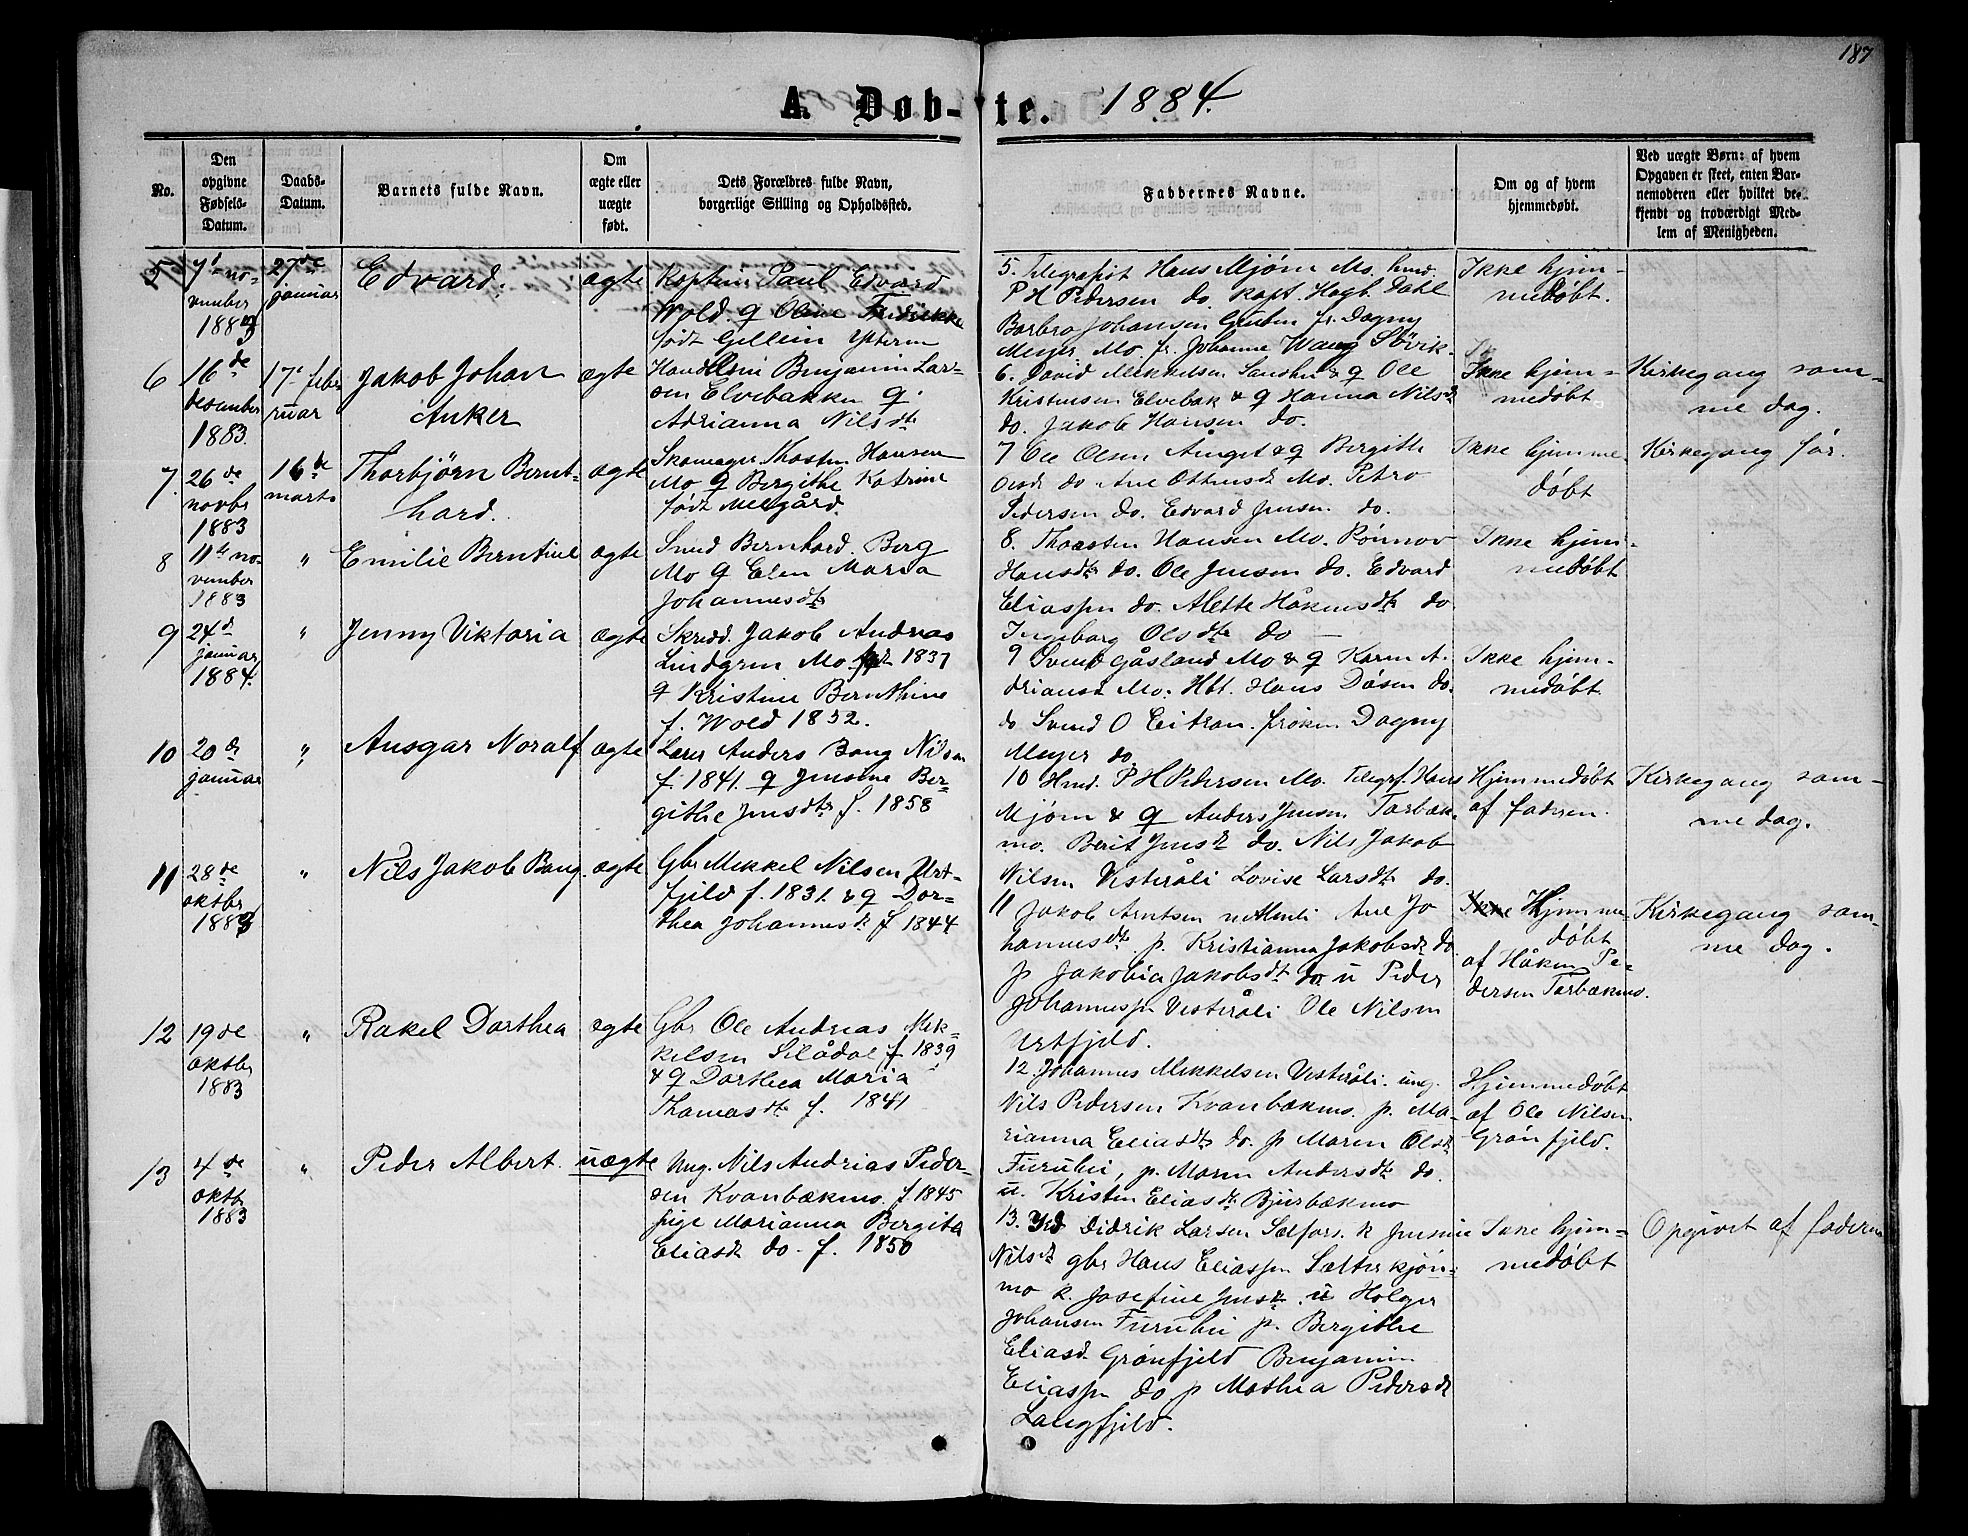 187
A. Døb-te. 1884.
No.
Den
opgivne
Fødsels-
Datum.
Daabs-
Datum.
Barnets fulde Navn.
Om
ægte eller
uægte
født.
Dets Forældres fulde Navn,
borgerlige Stilling og Opholdssted.
Faddernes Navne.
Om og af hvem
hjemmedøbt.
Ved uægte Børn: af hvem
Opgaven er skeet, enten Bar-
nemoderen eller hvilket be-
kjendt og troværdigt Med-
lem af Menigheden.
5
7d no-
vember
1883
27de
januar
Edvard.
ægte
Kaptein Paul Edvard
Wold. Q Oline Fredrikke
født Gellein Ytteren
5. Telegrafist Hans Mjøm Mo. hmd.
P H Pedersen do. Kapt. Hagb. Dahl
Barbro Johansen Gruben fr. Dagny
Meyer. Mo. fr. Johanne Wang Søvik
Ikke hjem-
medøbt.
6
16de
desember
1883.
17d febr
ruar
Jakob Johan
Anker
ægte
Benjamin Lar-
sen Elvebakken Q.
Adrianna Nilsdtr
6. David Mikkelsen & Q Ole
Kristensen Elvebak & Q Hanna Nilsdt
do. Jakob Hansen do.
Ikke hjem-
medøbt
Kirkegang sam-
me dag.
7.
26de
novbr
1883
16de
marts
Thorbjørn Bernt-
hard.
ægte
Skomager Thosten Hansen
Mo Q Bergithe Katrine
født Melgård.
7 Ole Olsen & Q Bergith
Olsdt do Ane Mo. Petro
Pedersen do. Edvard Jensen. do.
Ikke hjemme-
døbt
Kirkegang før.
8
11te no-
vember
1883
"
Emilie Berntine
ægte
Smed Bernhard. Berg
Mo Q Elen Maria
Johannesdtr
8. Thorsten Hansen Mo. Rønnov
Hansdtr do. Ole Jensen do. Edvard
Eliassen do. Alette Håkensdtr do
Ingeborg Olsdtr do
Ikke hjem-
medøbt
9
24d
januar
1884.
"
Jenny Viktoria
ægte
Skred. Jakob Andreas
Lindgren Mo født 1837
Q Kristine Bernthine
f. Wold 1852.
9 Svend Gåsland Mo & Q Karen A-
driansd Mo. Hbt. Hans Døsen do.
do Svend O Eitran. frøken Dagny
Meyer do
Ikke hjem-
medøbt
10
20de
januar
"
Ansgar Noralf
ægte
Lærer Anders Bang Nilsen
f. 1841. Q Jensine Ber-
githe Jensdtr f. 1858
10 Hmd. P H Pedersen Mo. Telegrf. Hans
Mjøm & Q Anders Jensen Tørbæk-
mo. Berit Jensdt do. Nils Jakob
Nilsen Vesteråli Lovise Larsdtr do.
Hjemmedøbt
af faderen.
Kirkegang sam-
me dag.
11
28de
oktbr
1883
"
Nils Jakob Bang.
ægte
Gbr Mikkel Nilsen Urt-
fjeld f. 1831. & Q Dor-
thea Johannesdt f 1844
11 Jakob Arntsen Ane Jo
hannesdtr p. Kristianna Jakobsdt do
p Jakobia Jakobsdt do u Peder
Johannessen Vesteråli Ole Nilsen
Urtfjeld.
Ikke Hjemme-
døbt
af Håken Pe-
dersen Tørbækmo.
Kirkegang sam-
me dag.
12
19de
oktbr
1883
"
Rakel Dorthea
ægte
Gbr Ole Andreas Mik-
kelsen f 1839
& Q Dorthea Maria
Thomasdtr f. 1841
12. Johannes Mikkelsen Vesteråli. ung.
Nils Pedersen Kvanbækmo. p. Ma-
rianna Eliasdtr do. p Maren Olsdt
Furuhei, p. Maren Andersdtr do.
u. Kristen Eliasdt Bjerbækmo
Hjemmedøbt
af Ole Nilsen
Grønfjeld.
13
4de
oktb.
1883
"
Peder Albert.
uægte
Ung. Nils Andreas Peder-
sen Kvanbækmo. f 1845
pige Marianna Bergita
Eliasdt do. f. 1850
13. Didrik Larsen Sælfors. k Jensine
Nilsdt gbr Hans Eliassen
mo k. Josefine Jensdt. u Holger
Johansen Furuhei p. Bergithe
Eliasd. Grønfjeld Benjamin
Eliassen do p Mathea Pedersdt
Langfjeld.
Ikke hjem-
medøbt
Opgivet af faderen